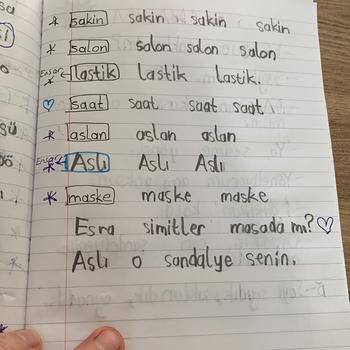 sakin sakin sakin sakin
salon salon salon salon
Lastik Lastik Lastik.
saat saat saat saat
aslan aslan aslan
Aslı Aslı Aslı
maske maske maske
Esra simitler masada mı?
Aslı o sandalye senin.